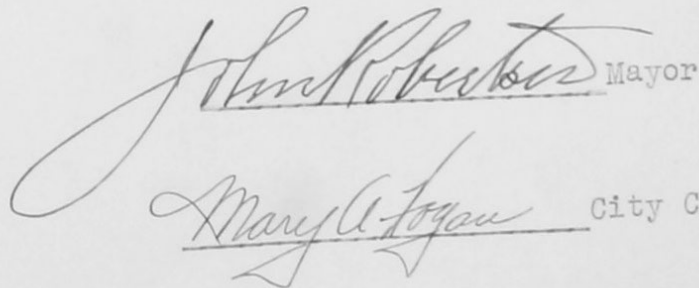 John Robertson Mayor
Mary A Logan City C